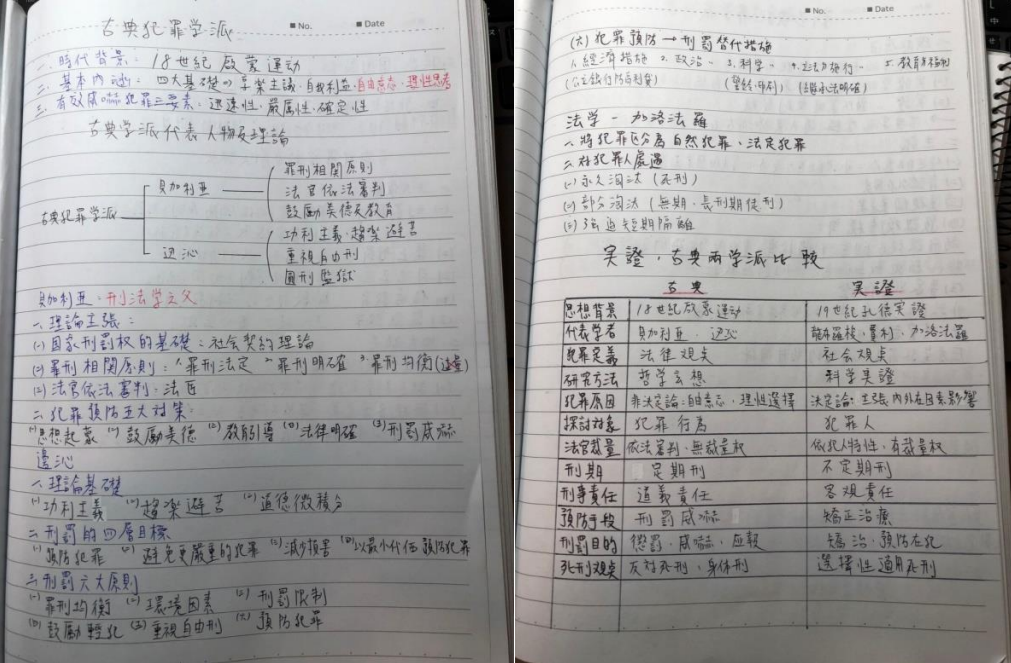 ■ No.
■ Date
古典犯罪学派
一、時代背景：18世紀啟蒙運動
二、基本內涵：四大基礎⇒享樂主義、自我利益、自由意志、理性思考
三、有效威嚇犯罪三要素：迅速性、嚴厲性、確定性
古典学派代表人物及理論
古典犯罪学派
貝加利亞
罪刑相關原則
法官依法審判
鼓勵美德及教育
邊沁
功利主義、趨樂避苦
重視自由刑
圓形監獄
貝加利亞：刑法学之父
一、理論主張：
(一)國家刑罰權的基礎：社会契約理論
(二)罪刑相關原則：1.罪刑法定 2.罪刑明確 3.罪刑均衡
(三)法官依法審判：法匠
二、犯罪預防五大対策：
(一)思想起蒙 (二)鼓勵美德 (三)教育引導 (四)法律明確 (五)刑罰威嚇
邊沁
一、理論基礎
(一)功利主義 (二)趨樂避苦 (三)道德微積分
二、刑罰的四層目標
(一)預防犯罪 (二)避免更嚴重的犯罪 (三)減少損害 (四)以最小代価預防犯罪
三、刑罰六大原則
(一)罪刑均衡 (二)環境因素 (三)刑罰限制
(四)鼓勵輕犯 (五)重視自由刑 (六)預防犯罪
■ No.
■ Date
(六)犯罪預防→刑罰替代措施
1.經濟措施 2.政治 3.科学 4.立法力施行 5.教育
法学－加洛法羅
一、將犯罪区分為自然犯罪、法定犯罪
二、在犯罪人處遇
(一)永久淘汰(死刑)
(二)部分淘汰(無期、長刑期徒刑)
(三)強迫短期隔離
実證、古典兩学派比較
古典 実證
思想背景 18世紀啟蒙運動 19世紀孔德実證
代表学者 貝加利亞、邊沁 龍布羅梭、費利、加洛法羅
犯罪定義 法律観点 社会観点
研究方法 哲学玄想 科学実證
犯罪原因 非決定論：自由意志、理性選擇 決定論：主張內外在因素影響
探討対象 犯罪行為 犯罪人
法官裁量 依法審判、無裁量权 依犯人特性、有裁量权
刑期 定期刑 不定期刑
刑事責任 道義責任 客观責任
預防手段 刑罰威嚇 矯正治療
刑罰目的 懲罰、威嚇、应報 矯治、預防在犯
死刑观点 反対死刑、身体刑 選擇性適用死刑